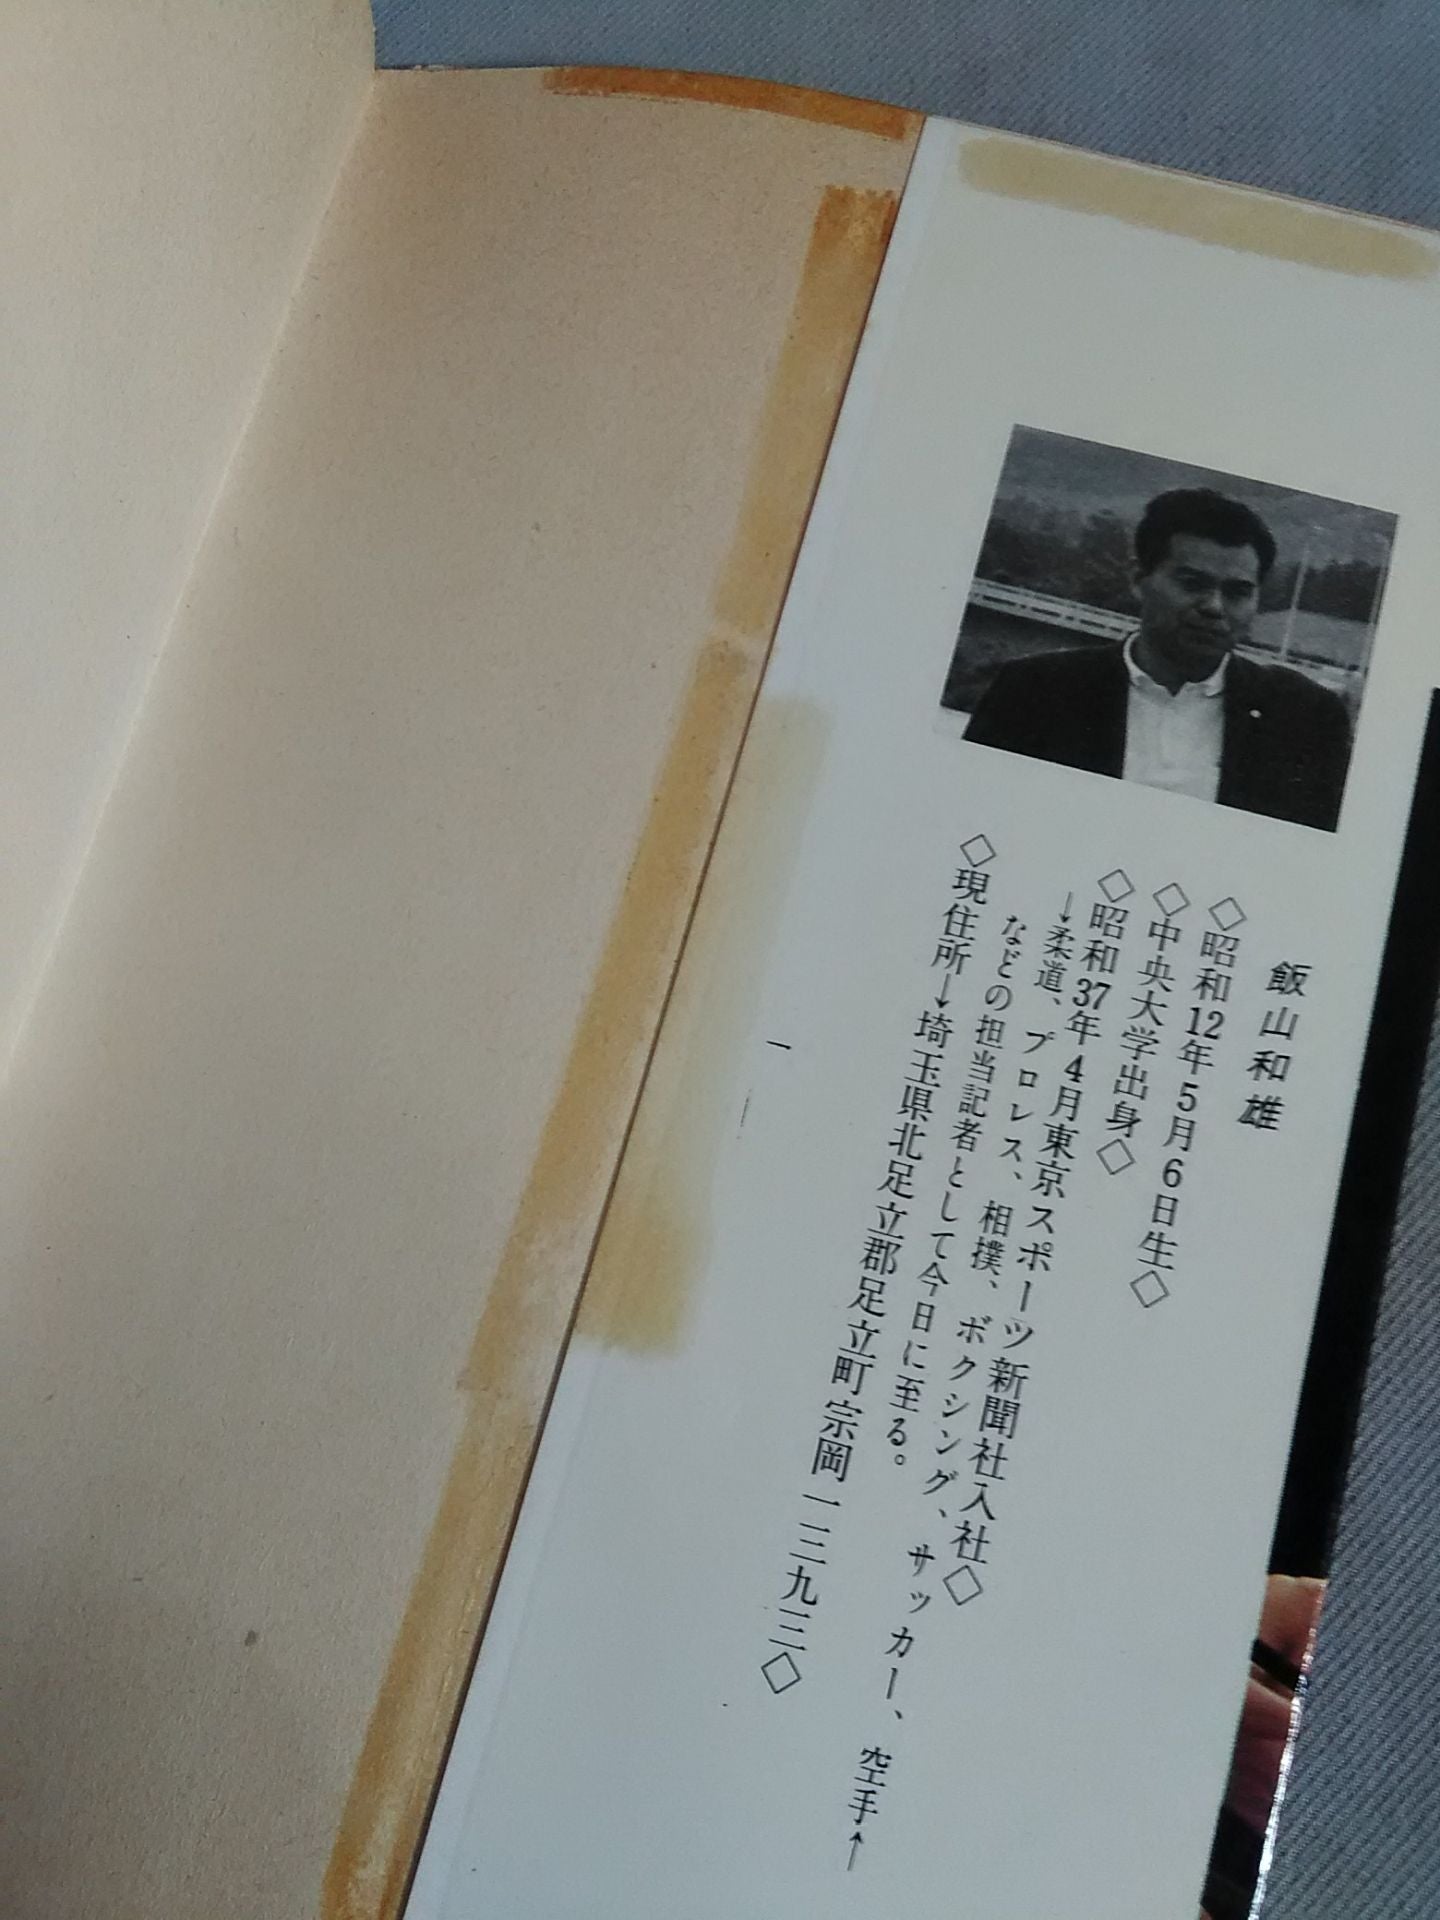 飯山和雄
◇昭和12年5月6日生◇
◇中央大学出身◇
◇昭和37年4月東京スポーツ新聞社入社◇
→柔道、プロレス、相撲、ボクシング、サッカー、空手←
などの担当記者として今日に至る。
◇現住所→埼玉県北足立郡足立町宗岡一三九三◇